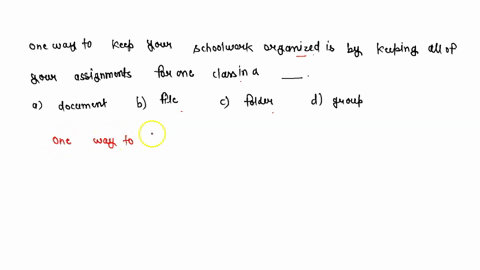 one way to keep your schoolwork organized is by keeping all of
your assignments for one class in a ___.
a) document b) file c) folder d) group
one way to